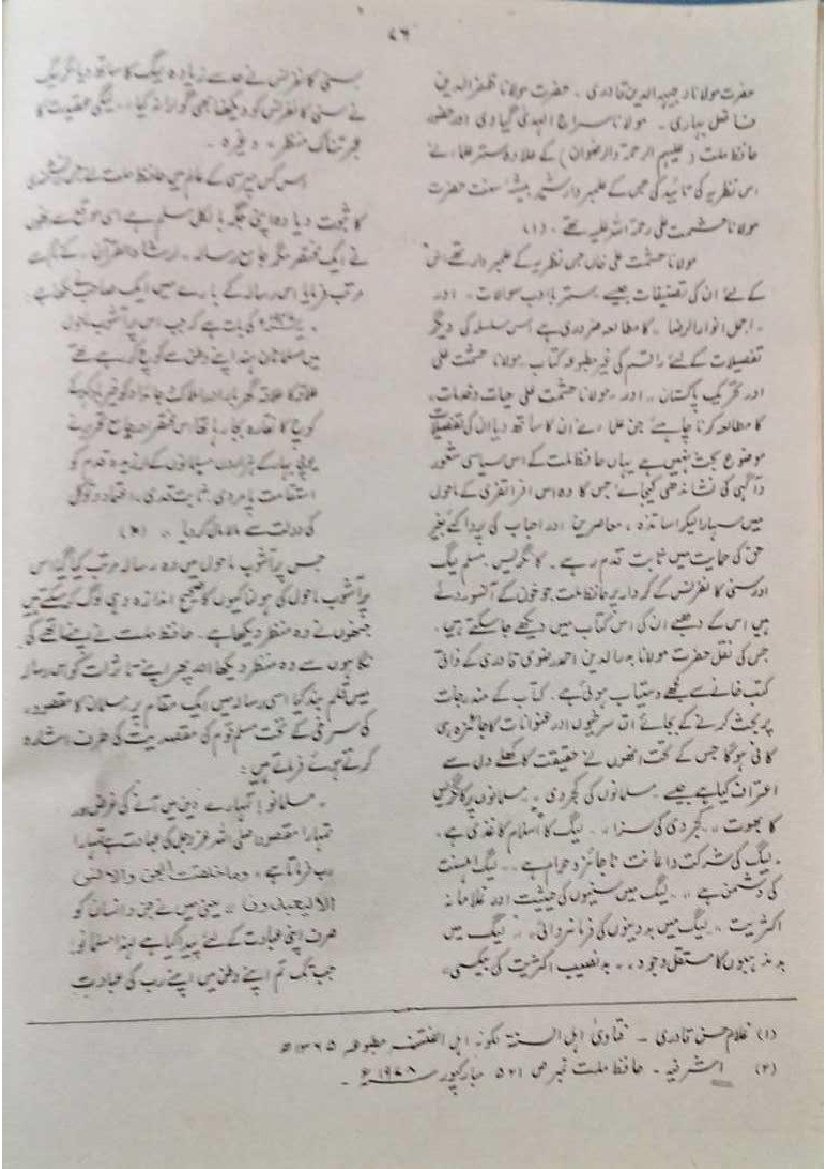 ۷۶
حضرت مولانا وجیہہ الدین قادری ۔ حضرت مولانا ظفر الدین
فاضل بہاری ۔ مولانا سراج الہدیٰ گیاوی اور حضور
حافظ ملت (علیہم الرحمۃ والرضوان) کے علاوہ ستر علماء نے
اس نظریہ کی تائید کی جس کے علمبردار شیر بیشۂ سنت حضرت
مولانا حشمت علی رحمۃ اللہ علیہ تھے ۔ (۱)
مولانا حشمت علی خاں جس نظریہ کے علمبردار تھے اس
کے لئے ان کی تصنیفات جیسے ستر باادب سوالات ۔ اور
۔ اجمل انوار الرضا ۔ کا مطالعہ ضروری ہے اس سلسلہ کی دیگر
تفصیلات کے لئے راقم کی غیر مطبوعہ کتاب ۔ مولانا حشمت علی
اور تحریک پاکستان ،، اور ، مولانا حشمت علی حیات وخدمات ،
کا مطالعہ کرنا چاہئے جن علماء نے ان کا ساتھ دیا ان کی تفصیلات
موضوع بحث نہیں ہے یہاں حافظ ملت کے اس سیاسی شعور
و آگہی کی نشاندھی کیجائے جس کا وہ اس افراتفری کے ماحول
میں سہارا لیکر اساتذہ ، معاصرین اور احباب کی پروا کئے بغیر
حق کی حمایت میں ثابت قدم رہے ۔ کانگریس ، مسلم لیگ
اور سنی کانفرنس کے کردار پر حافظ ملت جو خون کے آنسو رولے
ہیں اس کے دھبے ان کی اس کتاب میں دیکھے جاسکتے ہیں ،
جس کی نقل حضرت مولانا بدر الدین احمد رضوی قادری کے ذاتی
کتب خانے سے مجھے دستیاب ہوئی ہے ۔ کتاب کے مندرجات
پر بحث کرنے کے بجائے ان سرخیوں اور عنوانات کا جائزہ ہی
کافی ہوگا جس کے تحت انھوں نے حقیقت کا کھلے دل سے
اعتراف کیا ہے جیسے ۔ مسلمانوں کی کجروی ،، مسلمانوں پر کانگریس
کا بھوت ،، کجروی کی سزا ،، ۔ لیگ کا اسلام کاغذی ہے ۔
۔ لیگ کی شرکت و اعانت ناجائز و حرام ہے ،، ۔ لیگ اہلسنت
کی دشمن ہے ،، لیگ میں سنیوں کی حیثیت اور غلامانہ
اکثریت ،، لیگ میں بد دینوں کی فرمانروائی ،، لیگ میں
بد مذہبوں کا مستقل وجود ،، ۔ بد نصیب اکثریت کی بیکسی ،،
سنی کانفرنس نے حد سے زیادہ لیگ کا ساتھ دیا مگر لیگ
نے سنی کانفرنس کو دیکھنا بھی گوارا نہ کیا ،، لیگی عقیدت کا
عبرتناک منظر ،، وغیرہ ۔
اس کس مپرسی کے عالم میں حافظ ملت نے جس
کا ثبوت دیا وہ اپنی جگہ بالکل مسلم ہے اسی موقع سے انھوں
نے ایک مختصر مگر جامع رسالہ ۔ ارشاد القرآن ۔ کے نام سے
مرتب فرمایا اس رسالہ کے بارے میں ایک صاحب لکھتا ہے ،
کی بات ہے کہ جب اس پر آشوب ماحول
میں مسلمانان ہند اپنے وطن سے کوچ کر رہے تھے
علاقہ کا علاقہ گھر بار اور املاک جائداد کو خیرباد کہہ کے
کوچ کا نقارہ بجا رہا تھا اس مختصر اور جامع تحریر نے
یوپی بہار کے ہزاروں مسلمانوں کے لرزیدہ قدم کو
استقامت پامردی ، ثابت قدمی ، اعتماد و توکل
کی دولت سے مالا مال کردیا ،، (۲)
جس پر آشوب ماحول میں وہ رسالہ مرتب کیا گیا اس
پر آشوب ماحول کی ہولناکیوں کا صحیح اندازہ وہی لوگ کرسکتے ہیں
جنھوں نے وہ منظر دیکھا ہے ۔ حافظ ملت نے اپنے ماتھے کی
نگاہوں سے وہ منظر دیکھا اور پھر اپنے تاثرات کو اس رسالہ
میں قلم بند کیا اسی رسالہ میں ایک مقام پر مسلمان کا مقصود ،
کی سرخی کے تحت مسلم قوم کی مقصدیت کی طرف اشارہ
کرتے ہوئے فرماتے ہیں :
۔ مسلمانو ! تمہارے دنیا میں آنے کی غرض اور
تمہارا مقصود اصلی اللہ عزوجل کی عبادت ہے تمہارا
رب فرماتا ہے ، وما خلقت الجن والانس
الا لیعبدون ،، یعنی میں نے جن و انسان کو
صرف اپنی عبادت کے لئے پیدا کیا ہے لہذا مسلمانو !
جب تک تم اپنے وطن میں اپنے رب کی عبادت
(۱) غلام حسن قادری ۔ فتاویٰ اہل السنۃ مطبوعہ ۱۳۶۵ھ
(۲) اشرفیہ ۔ حافظ ملت نمبر ص ۵۲۱ مبارکپور ۱۹۷۸ء ۔